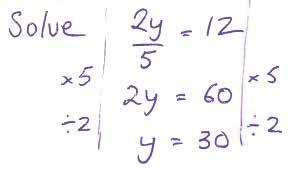 Solve 2y/5 = 12
×5 2y = 60 ×5
÷2 y = 30 ÷2